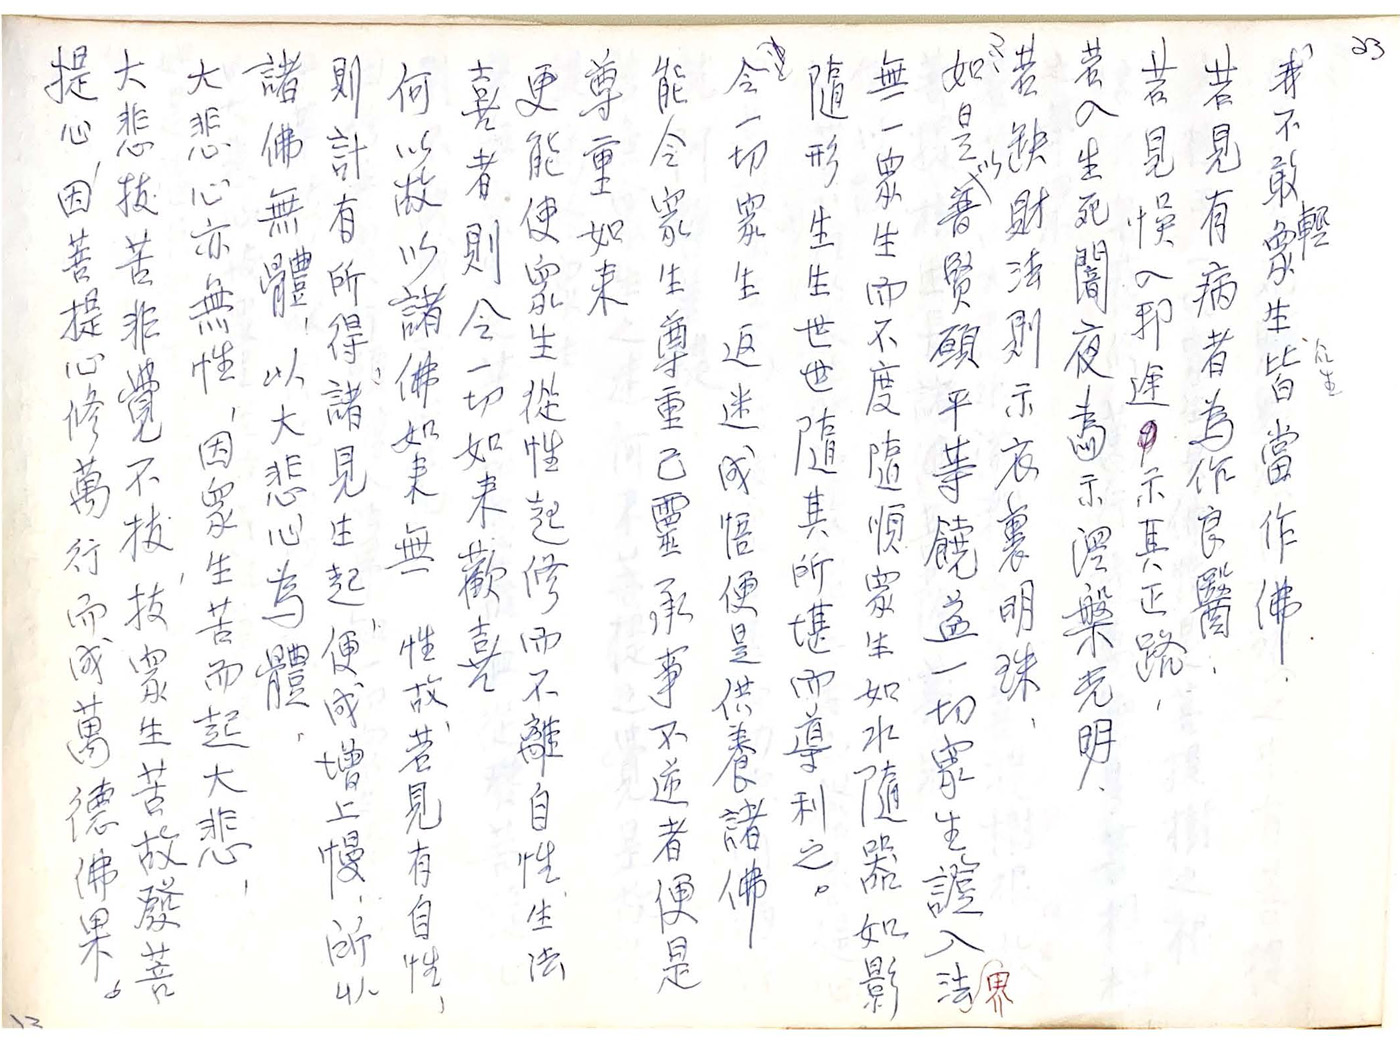 23
我不敢輕眾生皆當作佛.
众生
若見有病者為作良醫.
若見悞入邪途示其正路,
若入生死闇夜為示涅槃光明,
若缺財法則示衣裏明珠,
如是以普賢願平等饒益一切眾生證入法界
無一眾生而不度隨順眾生如水隨器如影
隨形生生世世隨其所堪而導利之。
令一切眾生返迷成悟便是供養諸佛
能令眾生尊重己靈承事不逆者便是
尊重如來
更能使眾生從性起修而不離自性,生法
喜者則令一切如來歡喜
何以故以諸佛如來無一性故,若見有自性,
則計有所得,諸見生起,便成增上慢,所以
諸佛無體,以大悲心為體,
大悲心亦無性,因眾生苦而起大悲,
大悲拔苦非覺不拔,拔眾生苦故發菩
提心,因菩提心修萬行而成萬德佛果。